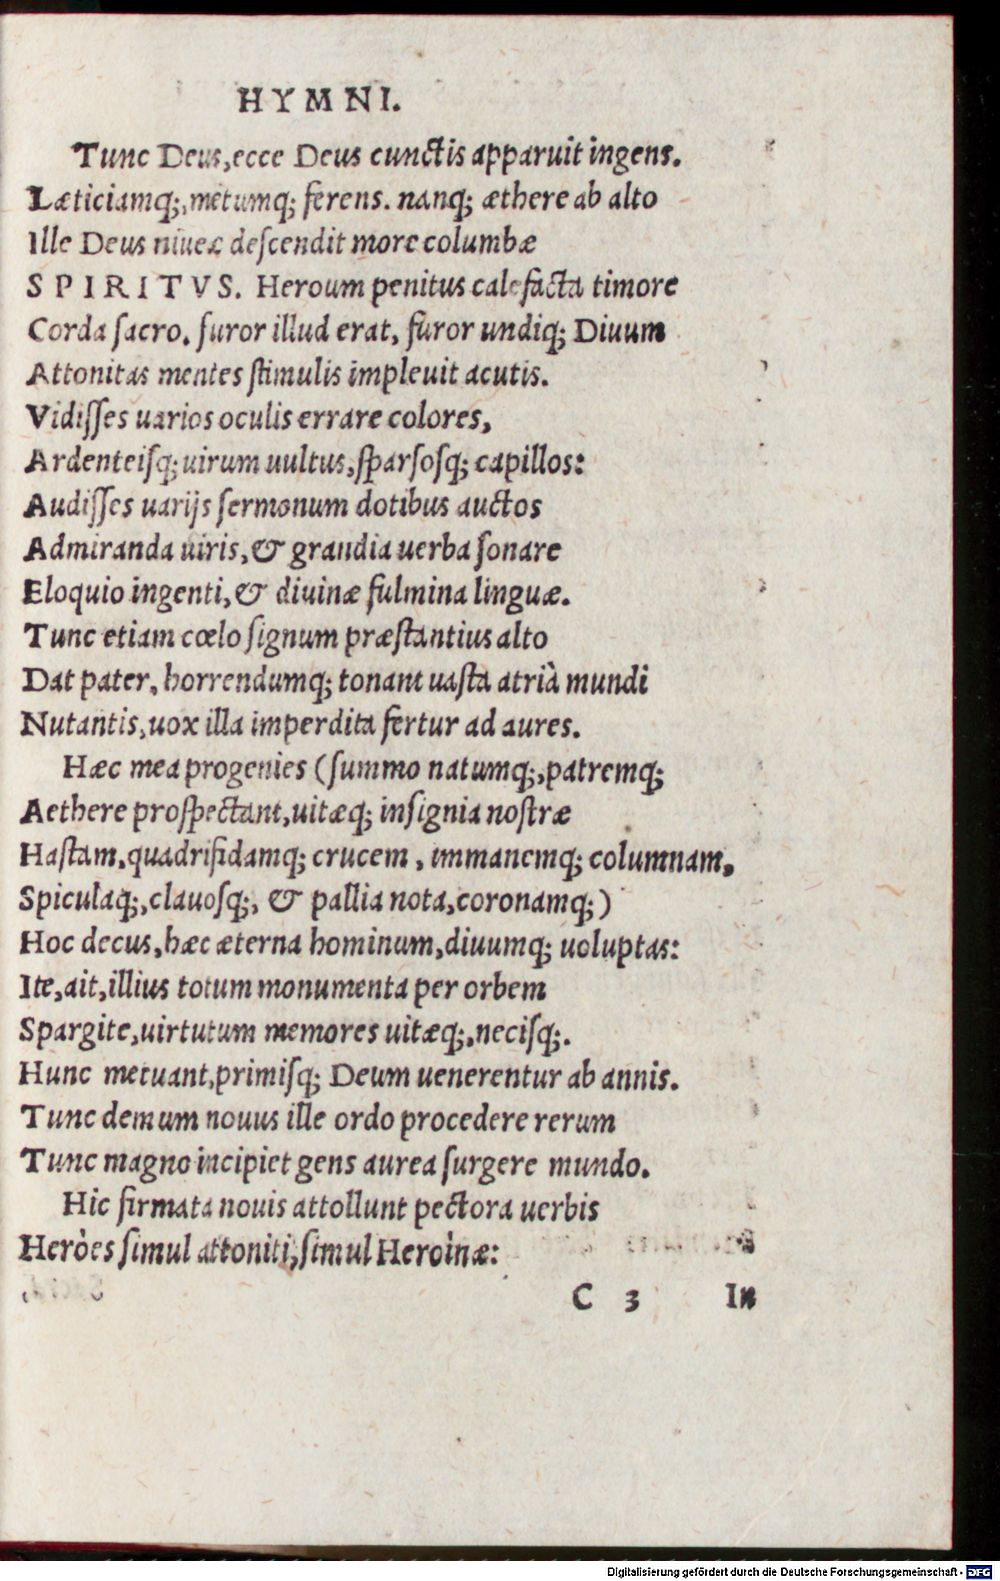 HYMNI.
Tunc Deus, ecce Deus cunctis apparuit ingens.
Læticiamq;, metumq; ferens. nanq; æthere ab alto
Ille Deus niueæ descendit more columbæ
SPIRITVS. Heroum penitus calefacta timore
Corda sacro. furor illud erat, furor undiq; Diuum
Attonitas mentes stimulis impleuit acutis.
Vidisses uarios oculis errare colores,
Ardenteisq; uirum uultus, sparsosq; capillos:
Audisses uarijs sermonum dotibus auctos
Admiranda uiris, & grandia uerba sonare
Eloquio ingenti, & diuinæ fulmina linguæ.
Tunc etiam cœlo signum præstantius alto
Dat pater, horrendumq; tonant uasta atrià mundi
Nutantis, uox illa imperdita fertur ad aures.
Hæc mea progenies (summo natumq;, patremq;
Aethere prospectant, uitæq; insignia nostræ
Hastam, quadrifidamq; crucem, immanemq; columnam,
Spiculaq;, clauosq;, & pallia nota, coronamq;)
Hoc decus, hæc æterna hominum, diuumq; uoluptas:
Ite, ait, illius totum monumenta per orbem
Spargite, uirtutum memores uitæq;, necisq;.
Hunc metuant, primisq; Deum uenerentur ab annis.
Tunc demum nouus ille ordo procedere rerum
Tunc magno incipiet gens aurea surgere mundo.
Hic firmata nouis attollunt pectora uerbis
Heròes simul attoniti, simul Heroìnæ:
C 3 In
Digitalisierung gefördert durch die Deutsche Forschungsgemeinschaft - DFG